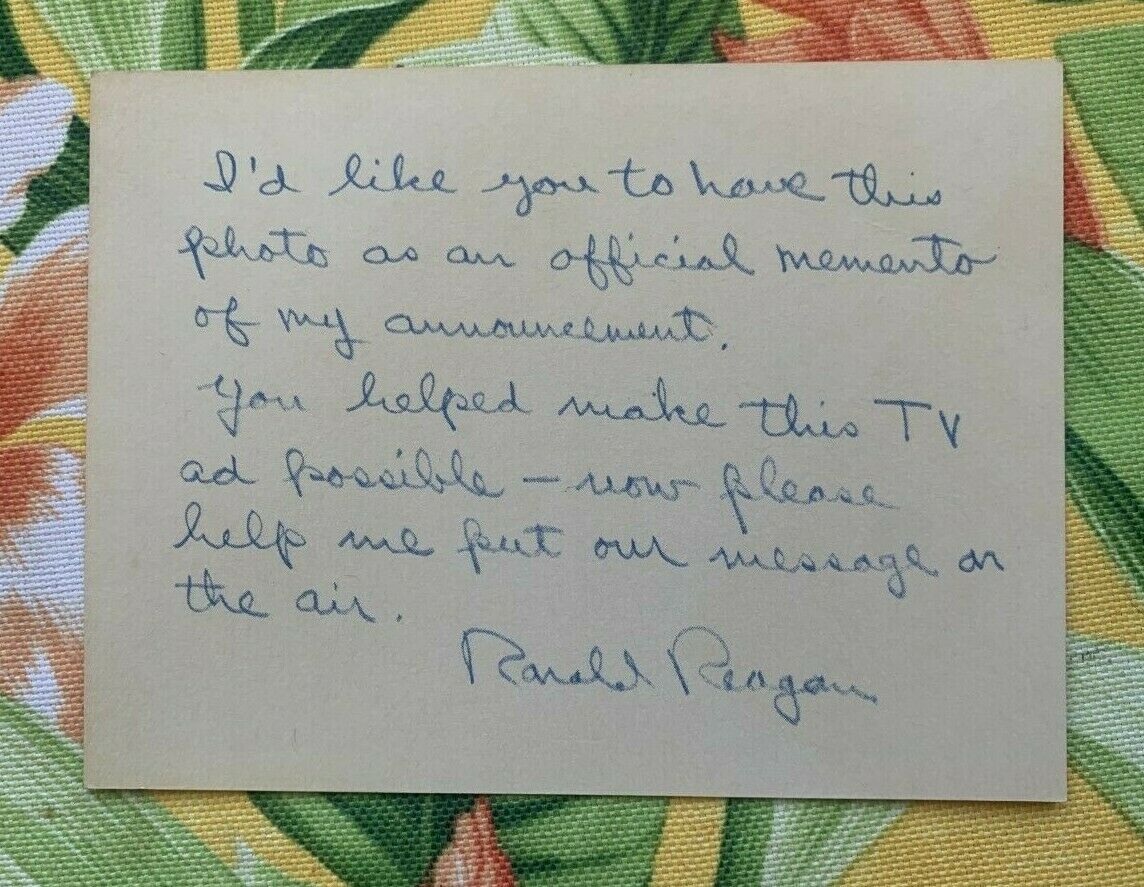 I'd like you to have this
photo as an official memento
of my announcement.
You helped make this TV
ad possible – now please
help me put our message on
the air.
Ronald Reagan